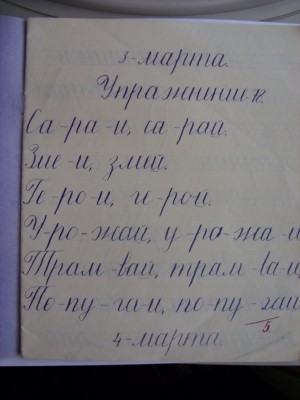 3-марта.
Упражнение.
Са-ра-и, са-рай.
Зме-и, змей.
Ге-ро-и, ге-рой.
У-ро-жай, у-ро-жа-и
Трам-вай, трам-ва-и,
По-пу-га-и, по-пу-гай.
5
4-марта.